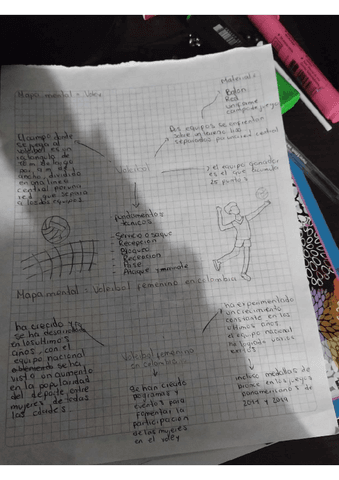 Mapa mental: Voley
Material:
Balon
Red
uniforme
campo de juego
Dos equipos se enfrentan
sobre un terreno liso
separados por una red central
Voleibol
y el equipo ganador
es el que
puntos
El campo donde
se juega al
voleibol es un
rectangulo de
18 m de largo
por 9 m de
ancho, dividido
en una linea
central por una
red que separa
a los dos equipos
Fundamentos
tecnicos
Servicio o saque
Recepcion
Bloqueo
Recepcion
Pase
Ataque y remate
Mapa mental: Voleibol femenino en colombia
ha crecido y
se ha desarrollado
en los ultimos
años, con el
equipo nacional
se ha
visto un aumento
en la popularidad
del deporte entre
mujeres de todas
las edades
Voleibol femenino
en colombia
Se han creado
programas y
eventos para
fomentar la
participacion
de las mujeres
en el voley
ha experimentado
un crecimiento
constante en los
ultimos años
equipo nacional
ha logrado varios
exitos
medallas de
bronce en los juegos
panamericanos de